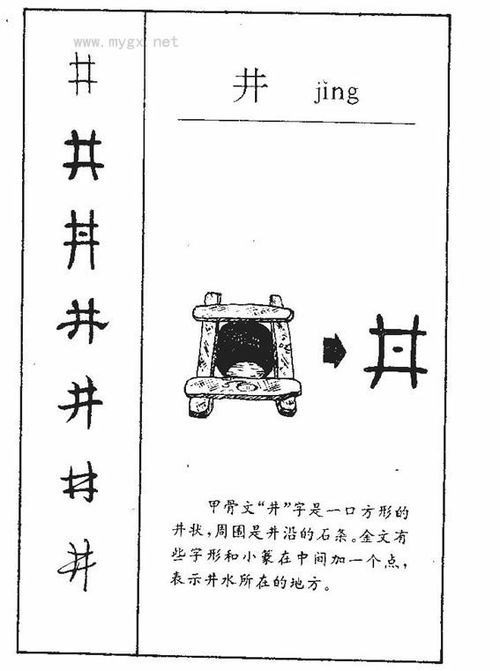 www.mygx.net
井 jǐng
井
井
井
井
井
井
井
甲骨文“井”字是一口方形的
井状，周围是井沿的石条。金文有
些字形和小篆在中间加一个点，
表示井水所在的地方。